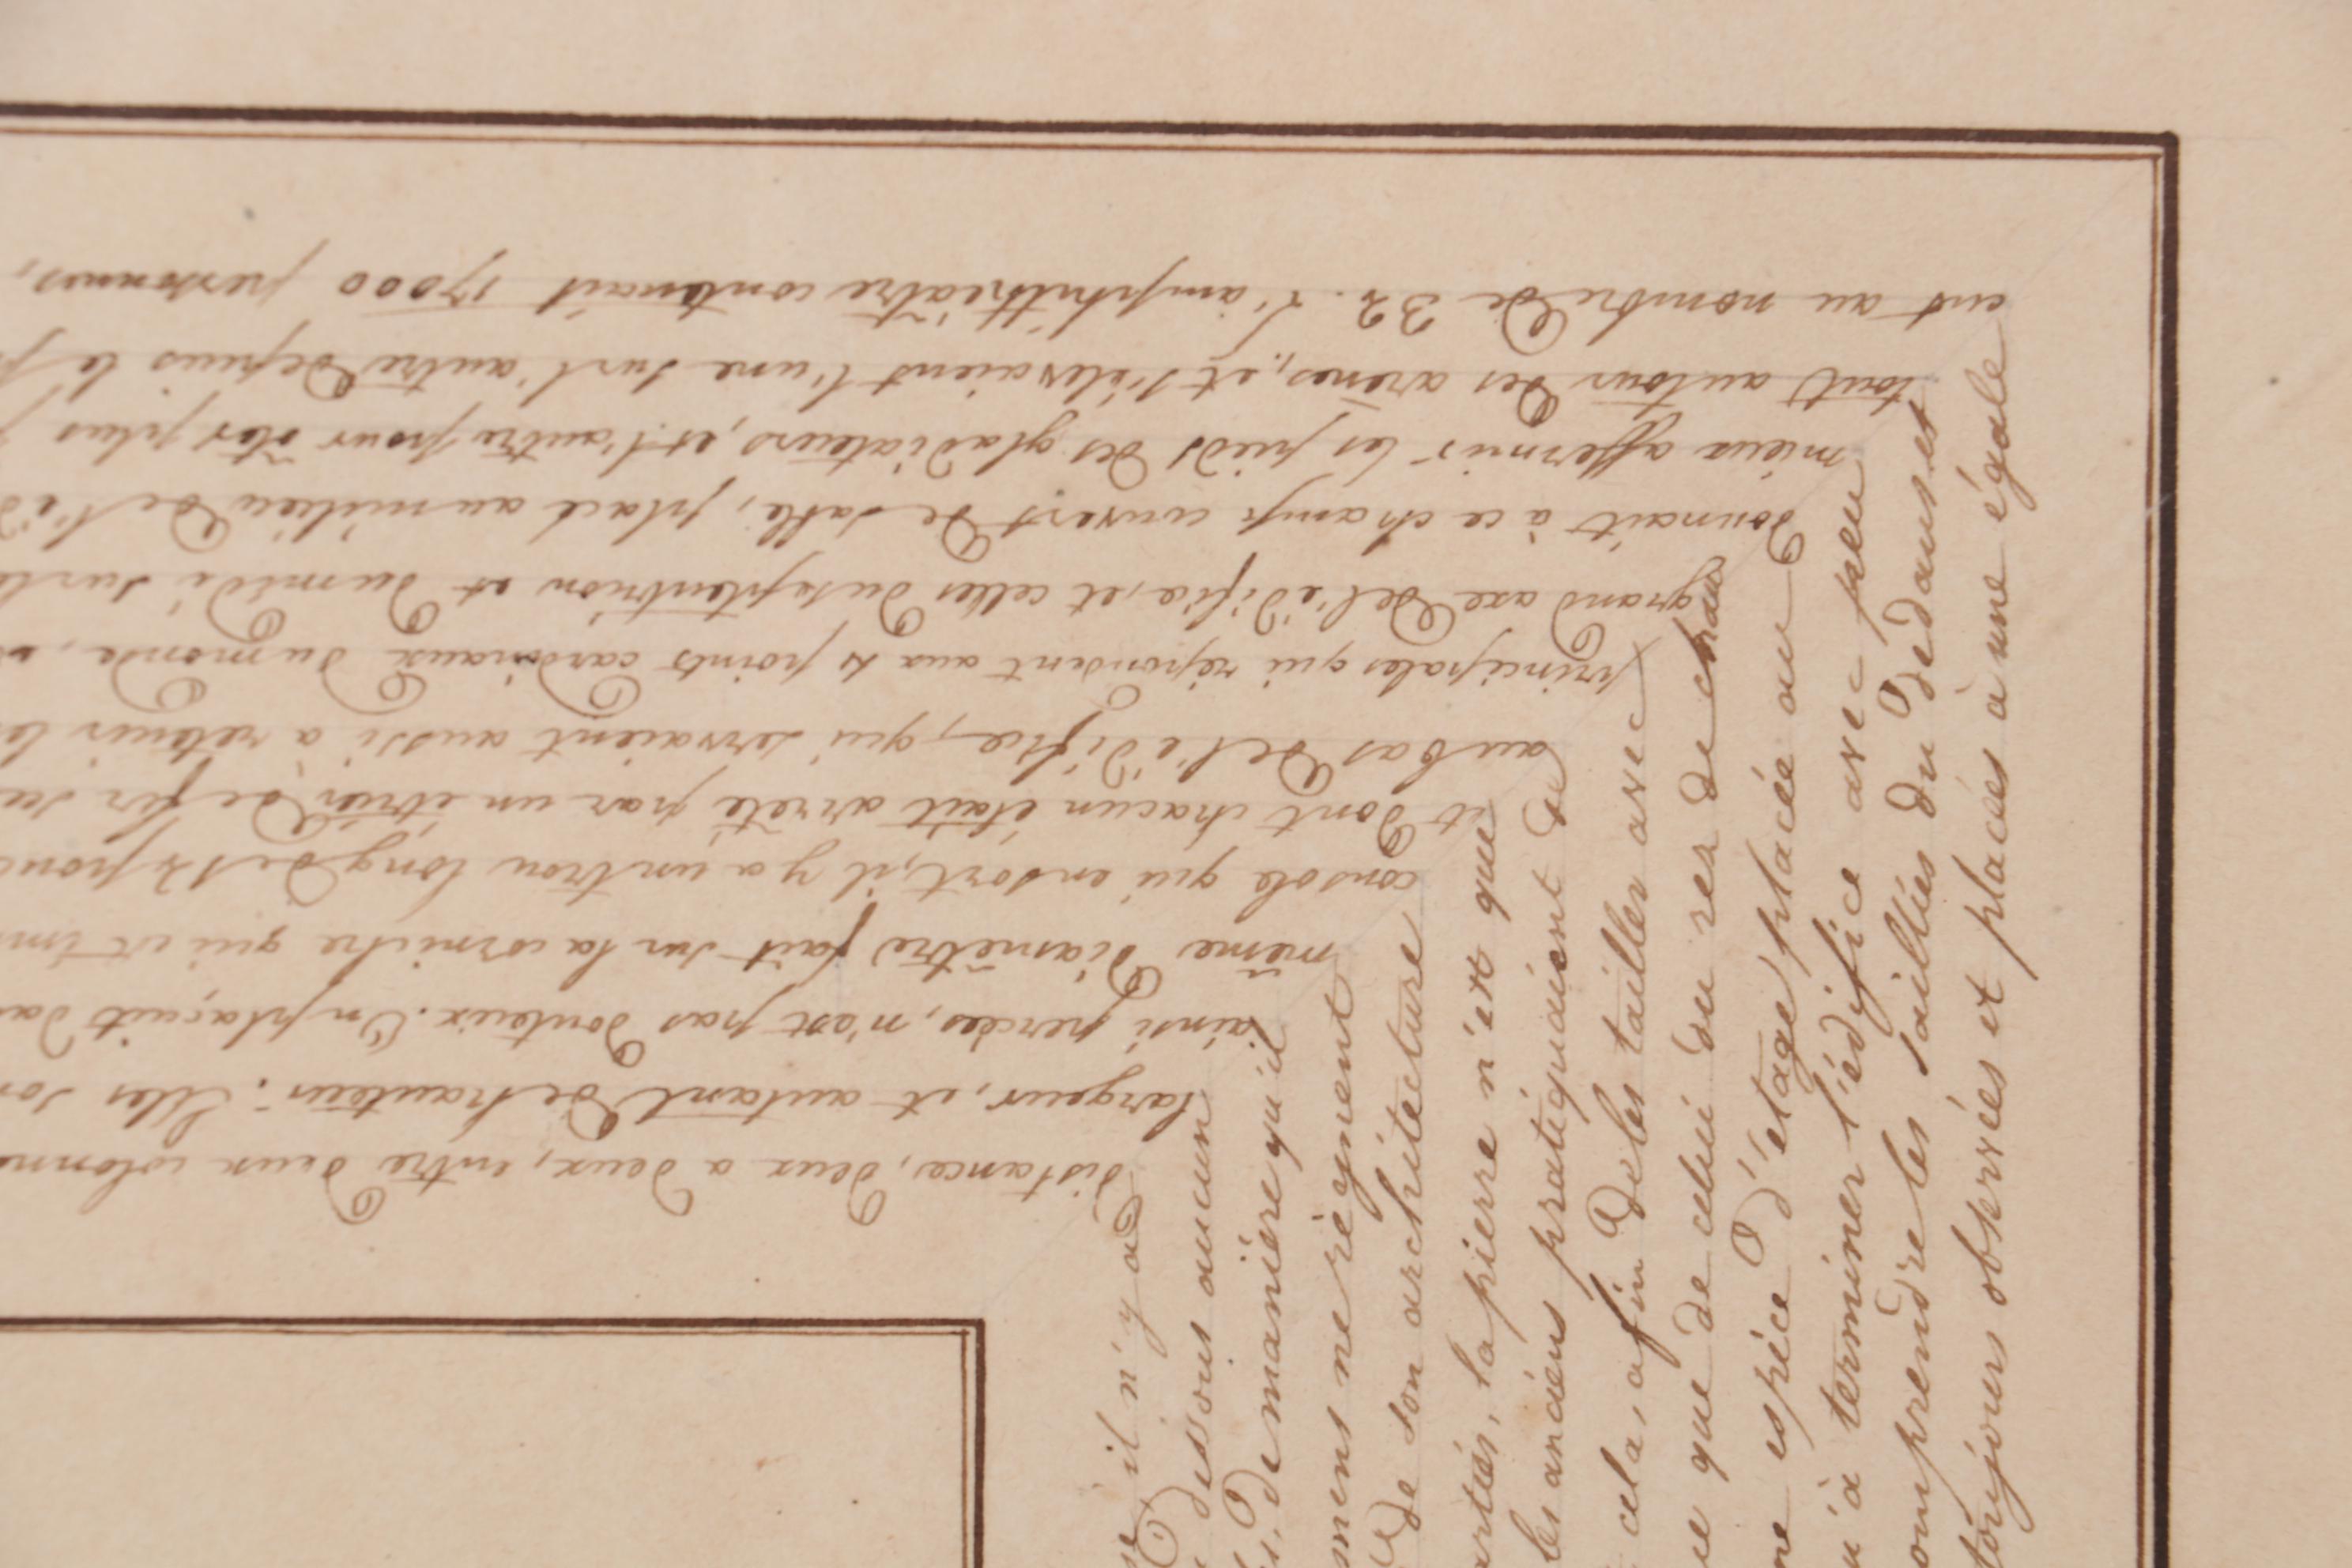 distance, deux a deux, entre deux colonn
largeur, et autant de hauteur. Elles son
ainsi percées, n'est pas douteux. On plaçait da
même diamêtre fait sur la corniche qui est im
console qui en sort, il y a un trou long de 12 pouc
et dont chacun était arrété par un étrier de fer
au bas de l'édifice, qui servaient aussi a retenir le
principales qui répondent aux 4 points cardinaux du monde,
grand axe de l'edifice, et celles du septentrion et du midi sur le
donnait à ce champ couvert de sable, placé au milieu de l'éd
mieux affermir les pieds des gladiateurs, et l'autre pour ôter plus
tout autour des arènes, et s'élevaient l'une sur l'autre depuis le p
ent au nombre de 32. L'amphithéâtre contenait 17000 personnes,
il n'y a
dessous aucun
de manière qu'il
mens ne règnent
de son architecture
arties, la pierre n'est que
les anciens pratiquaient de
cela, afin de les tailler avec
ue que de celui du rez de chau
ne espèce d'étage placée au
u'à terminer l'édifice avec peu
omprendre les saillies du dedans et
toujours observées et placées à une égale